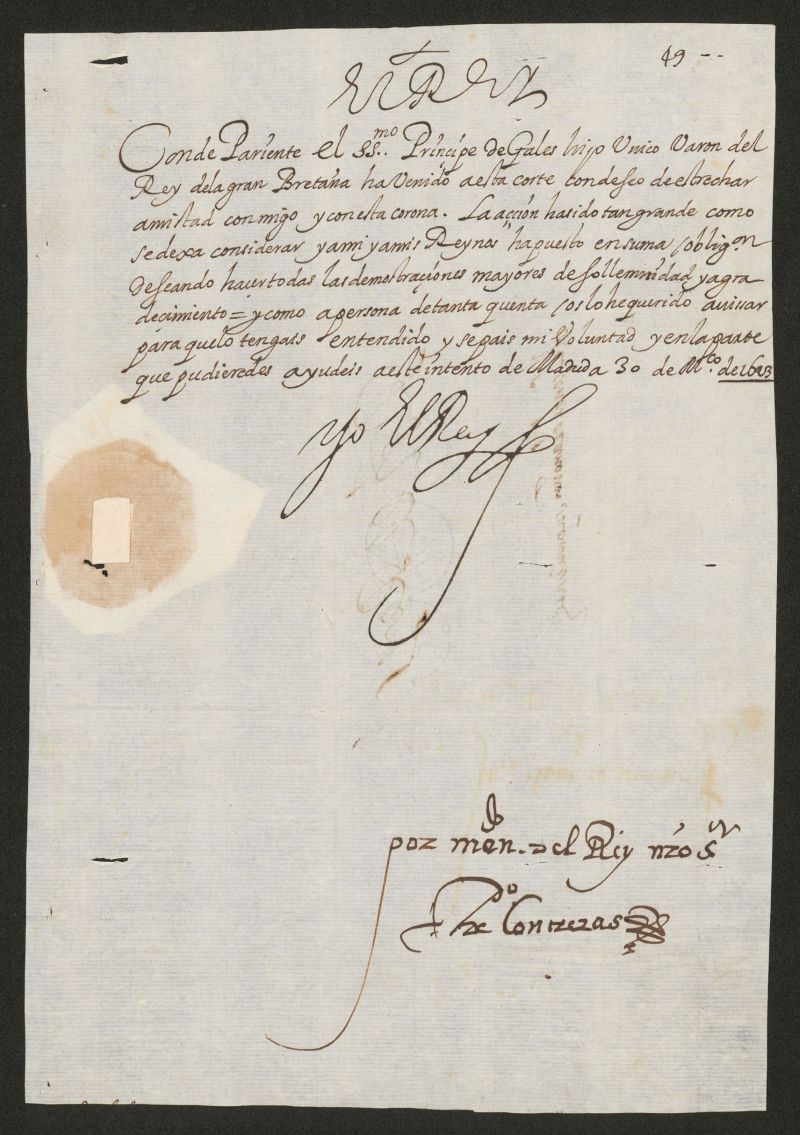 49 --
El Rey
Conde Pariente el SS.mo Principe de Gales hijo Unico Varon del
Rey dela gran Bretaña ha Venido aesta corte con deseo de estrechar
amistad con migo y con esta corona. La acción ha sido tan grande como
se dexa considerar y a mi y a mis Reynos ha puesto en suma obligon
Deseando hacer todas las demostraciones mayores de sollemnidad y agra
decimiento = y como a persona de tanta quenta os lo he querido avissar
para que lo tengais entendido y sepais mi Voluntad y en la parte
que pudieredes ayudeis a este intento de Madrid a 30 de M.co de 1623
Yo El Rey
por mdo del Rey nro Sr
Po de Contreras